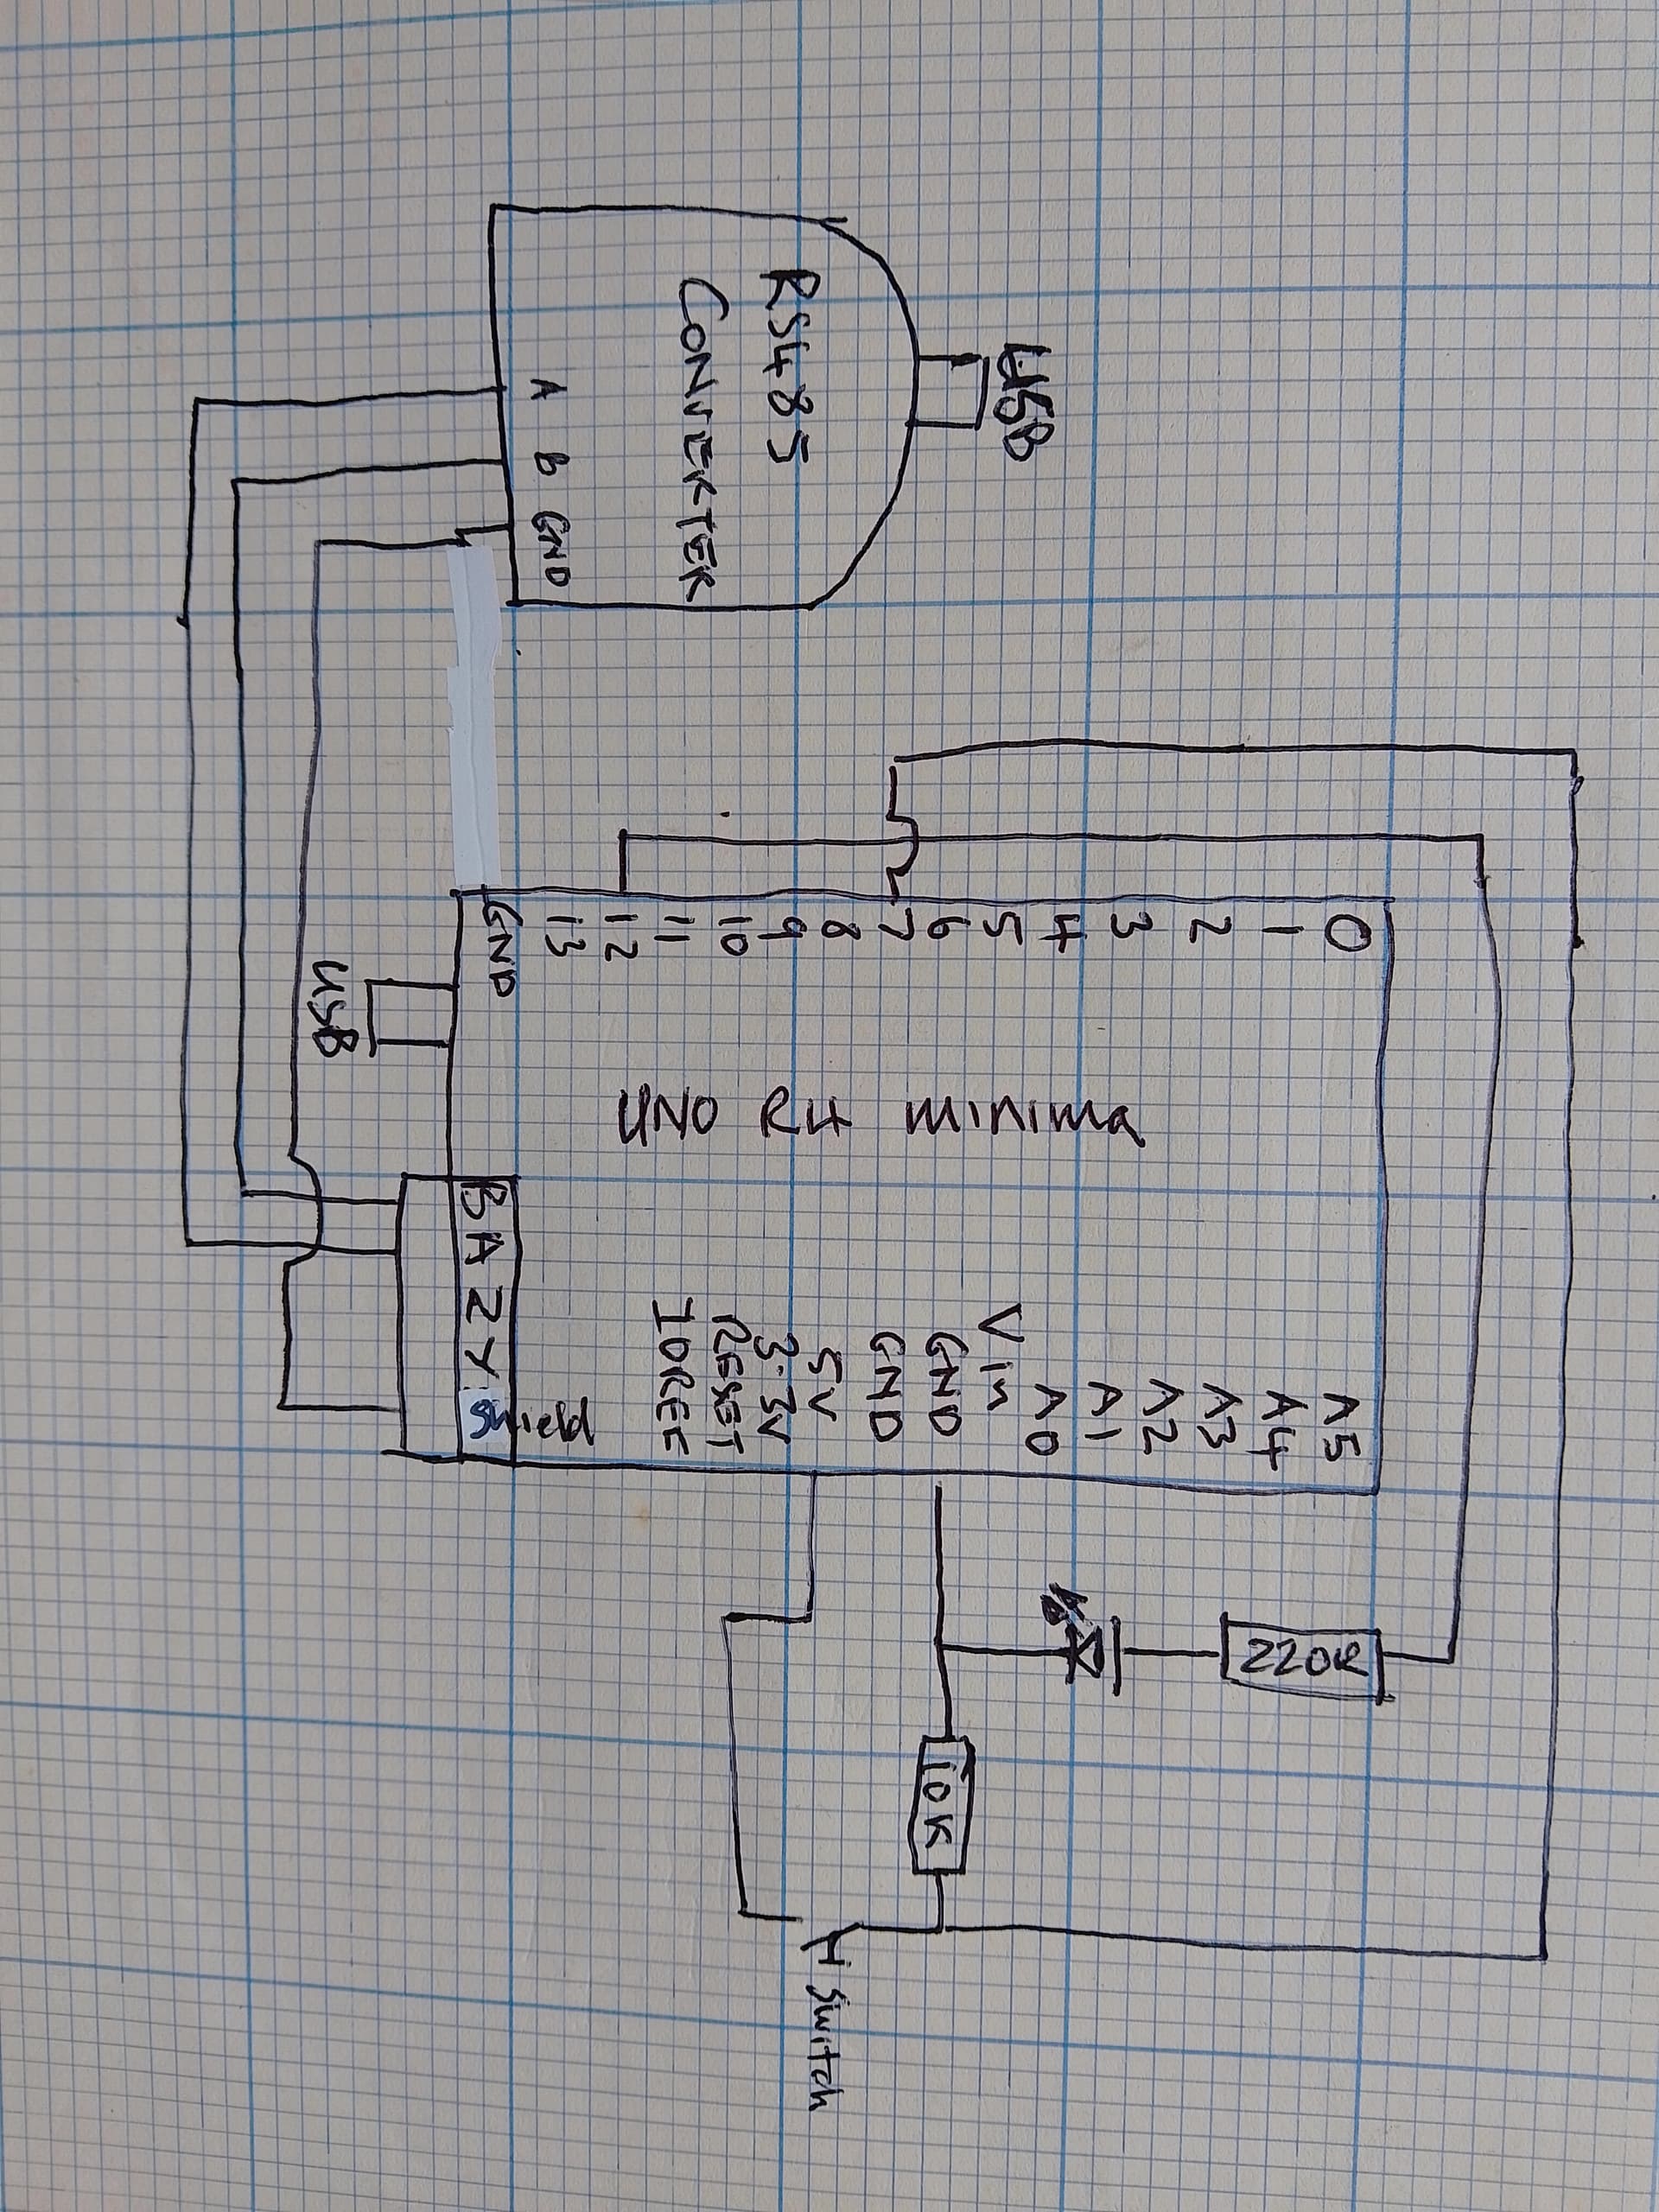 USB
RS485
CONVERTER
A B GND
0
1
2
3
4
5
6
7
8
9
10
11
12
13
GND
USB
UNO R4 minima
A5
A4
A3
A2
A1
A0
Vin
GND
GND
5V
3.3V
RESET
IOREF
B A Z Y Shield
220R
10K
Switch